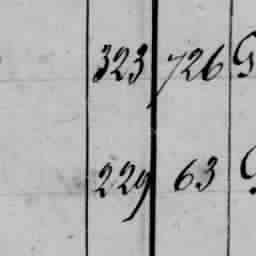 323 726
229 63